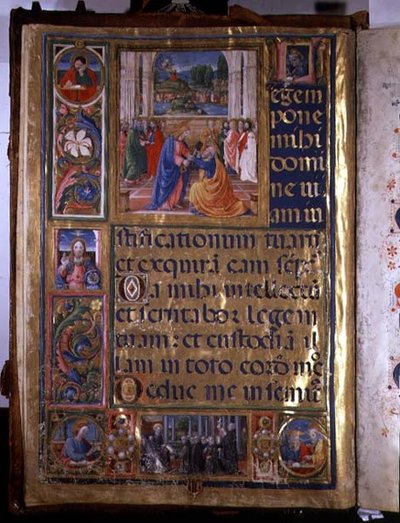 Legem
pone
mihi
domi
ne ui
am iu
stificationum tuarū
et exquirā eam sēp
Da mihi intellectū
et scrutabor legem
tuam: et custodiā il
lam in toto
Deduc me in semitā